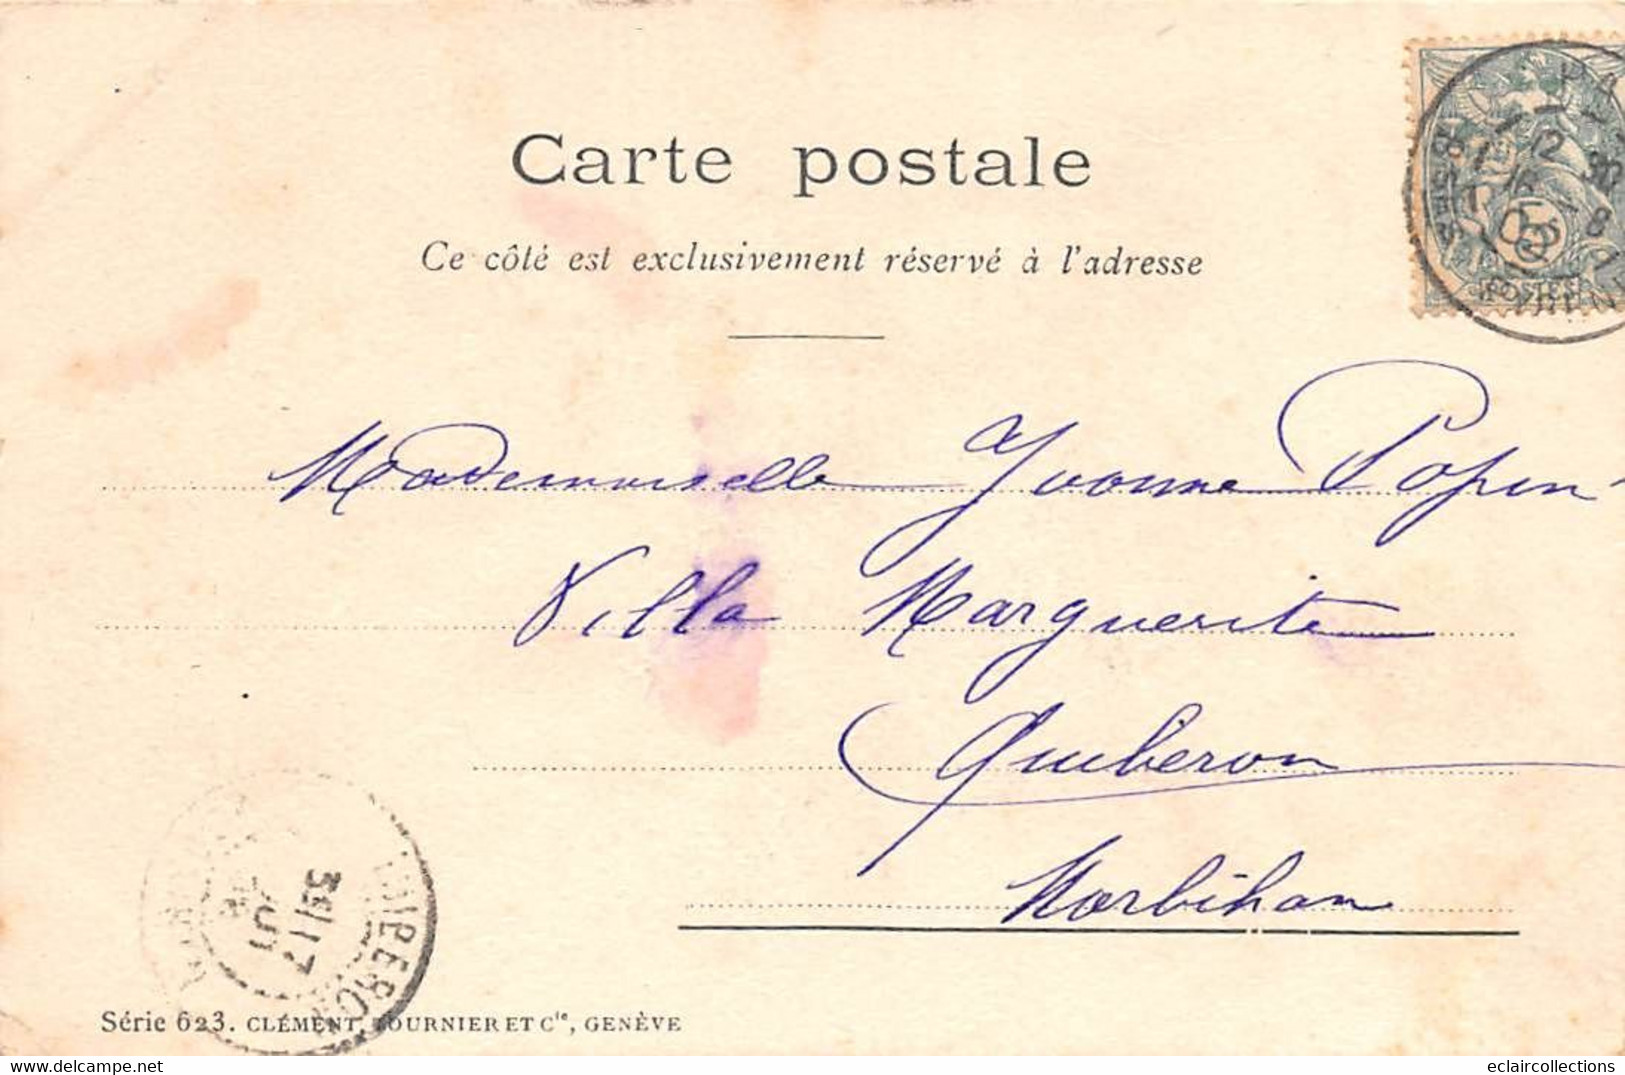 Carte postale
Ce côté est exclusivement réservé à l'adresse
POSTES
Mademoiselle Yvonne Popin
Villa Marguerite
Quiberon
Morbihan
Série 623. CLÉMENT, TOURNIER ET Cie, GENÈVE
eclaircollections